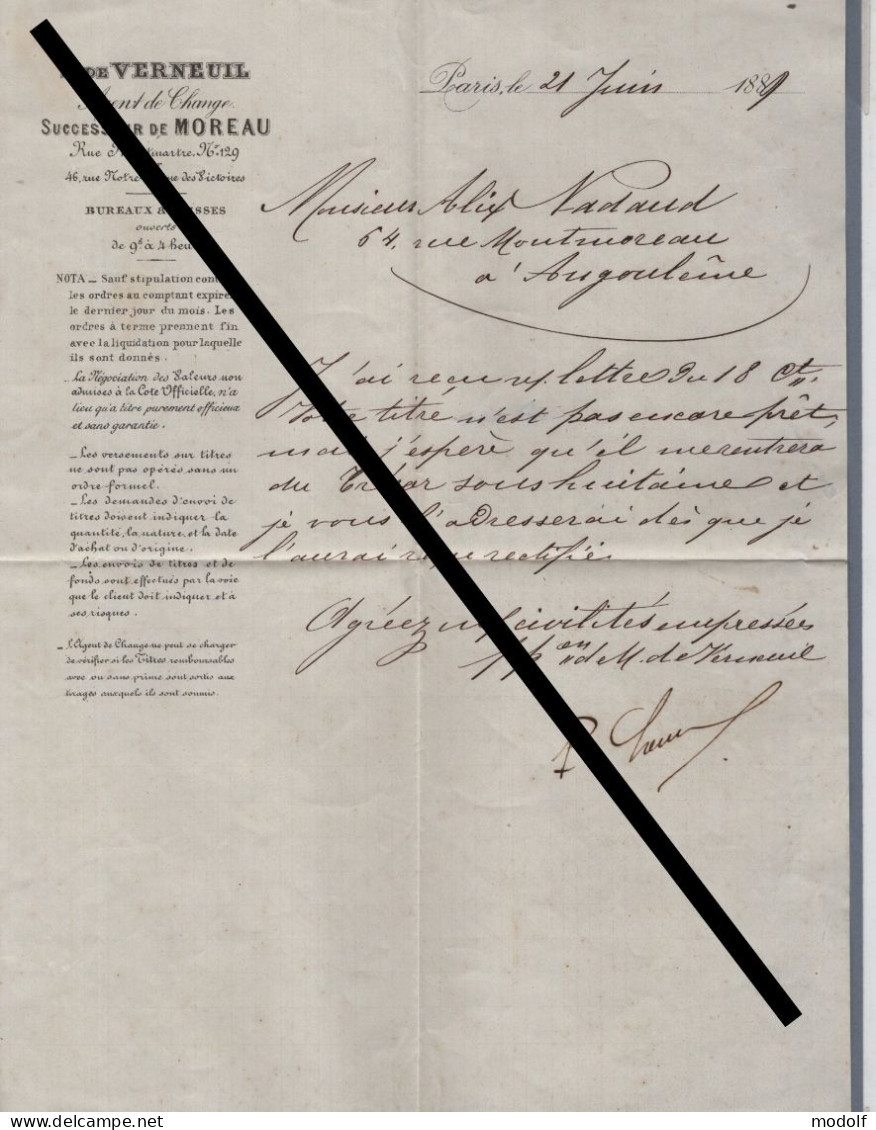 DE VERNEUIL
Agent de Change
SUCCESSEUR DE MOREAU
Rue Montmartre, No. 129
46, rue Notre Dame des Victoires
BUREAUX & CAISSES
ouverts
de 9h à 4 heures
NOTA _ Sauf stipulation contraire
les ordres au comptant expirent
le dernier jour du mois. Les
ordres à terme prennent fin
avec la liquidation pour laquelle
ils sont donnés.
_ La Négociation des Valeurs non
admises à la Cote Officielle, n'a
lieu qu'à titre purement officieux
et sans garantie.
_ Les versements sur titres
ne sont pas opérés sans un
ordre formel.
_ Les demandes d'envoi de
titres doivent indiquer la
quantité, la nature, et la date
d'achat ou d'origine.
_ Les envois de titres et de
fonds sont effectués par la voie
que le client doit indiquer et à
ses risques.
_ L'Agent de Change ne peut se charger
de vérifier si les Titres remboursables
avec ou sans prime sont sortis aux
tirages auxquels ils sont soumis.
Paris, le 21 Juin 1889
Monsieur Alix Nadaud
64, rue Montmoreau
à Angoulême
J'ai reçu v/ lettre du 18 Ct.
Votre titre n'est pas encore prêt,
mais j'espère qu'il me rentrera
du Trésor sous huitaine et
je vous l'adresserai dès que je
l'aurai reçu rectifié
Agréez m/ civilités empressées
p/p on d M. de Verneuil
delcampe.net
modolf